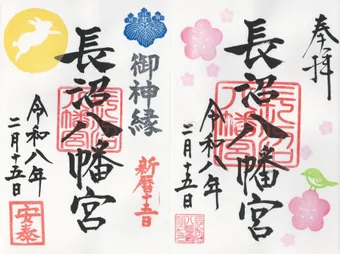 奉拝
長沼八幡宮
令和八年
二月十五日
長沼八幡宮
御神縁
新暦十五日
長沼八幡宮
令和八年
二月十五日
安泰